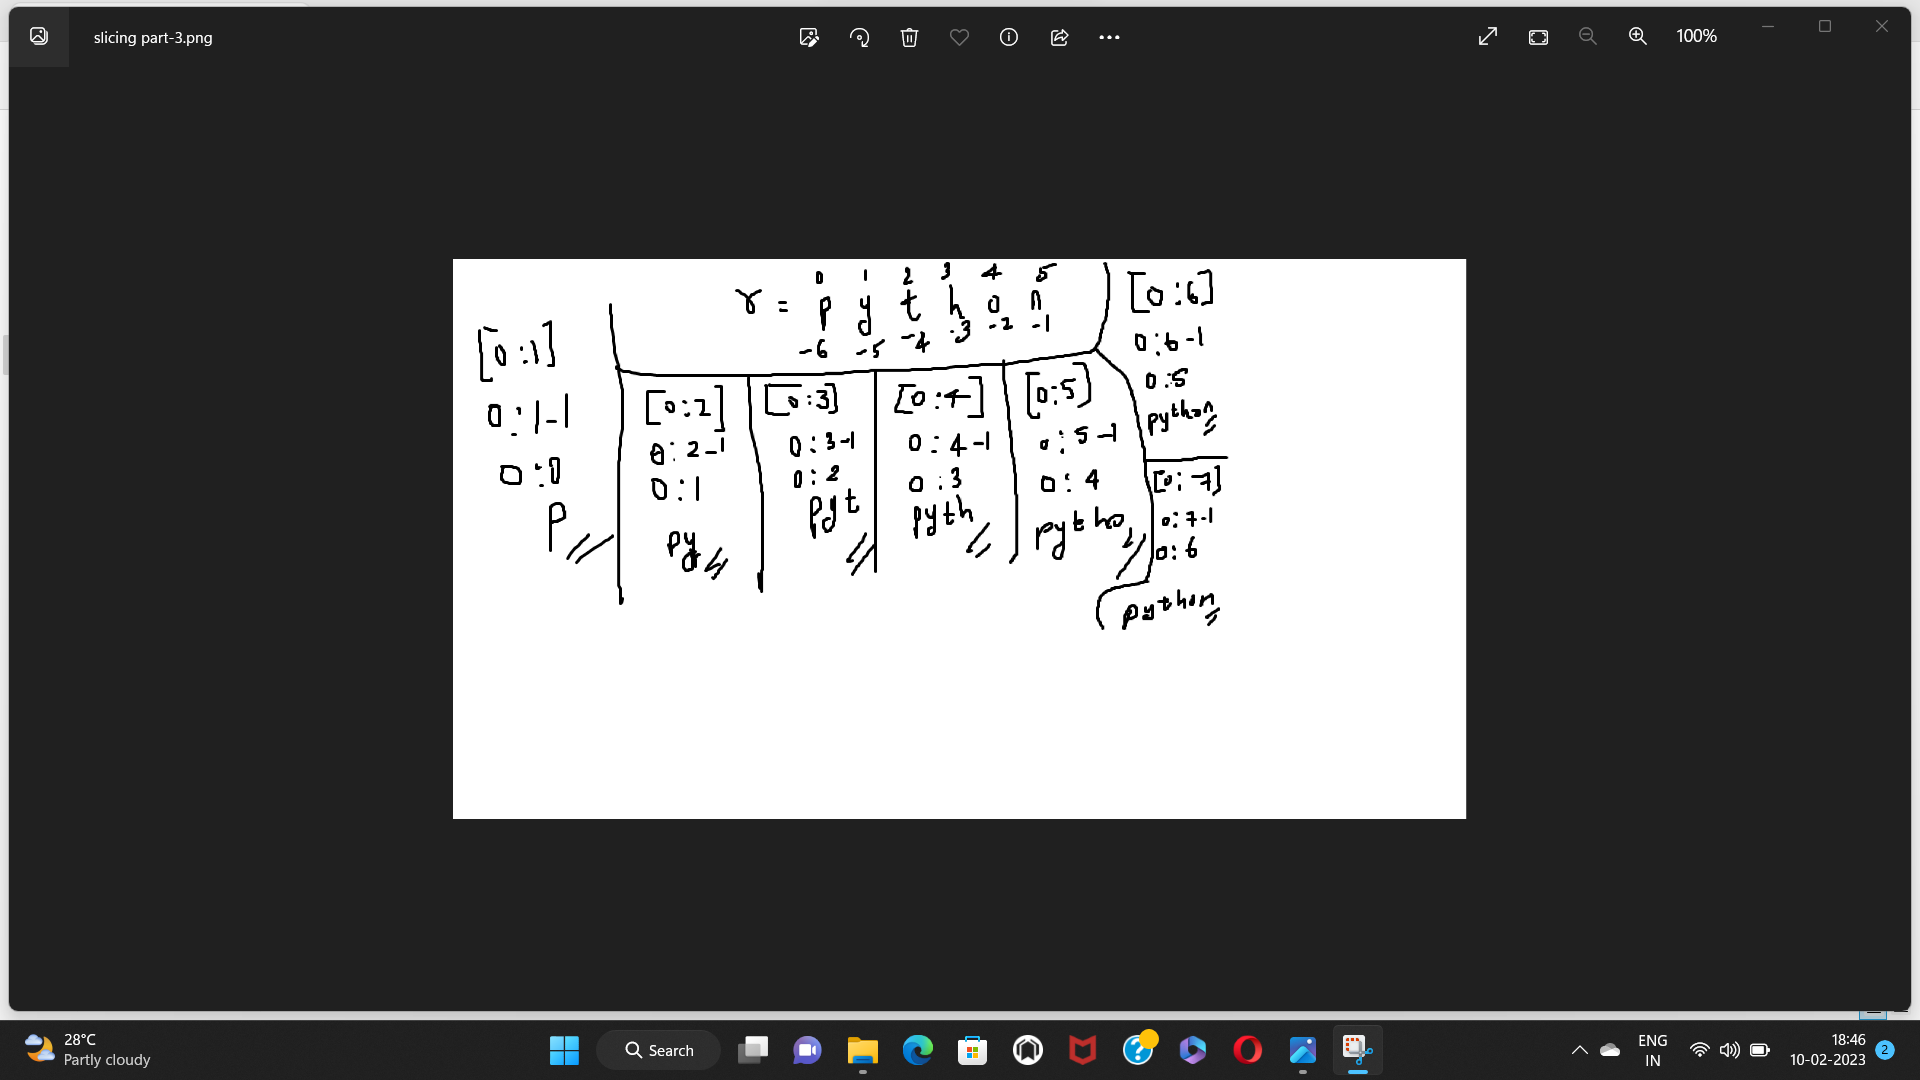 slicing part-3.png
100%
0 1 2 3 4 5
r = p y t h o n
-6 -5 -4 -3 -2 -1
[0:1]
0:1-1
0:0
P
[0:2]
0:2-1
0:1
py
[0:3]
0:3-1
0:2
pyt
[0:4]
0:4-1
0:3
pyth
[0:5]
0:5-1
0:4
pytho
[0:6]
0:6-1
0:5
python
[0:7]
0:7-1
0:6
python
28°C
Partly cloudy
Search
ENG
IN
18:46
10-02-2023
2